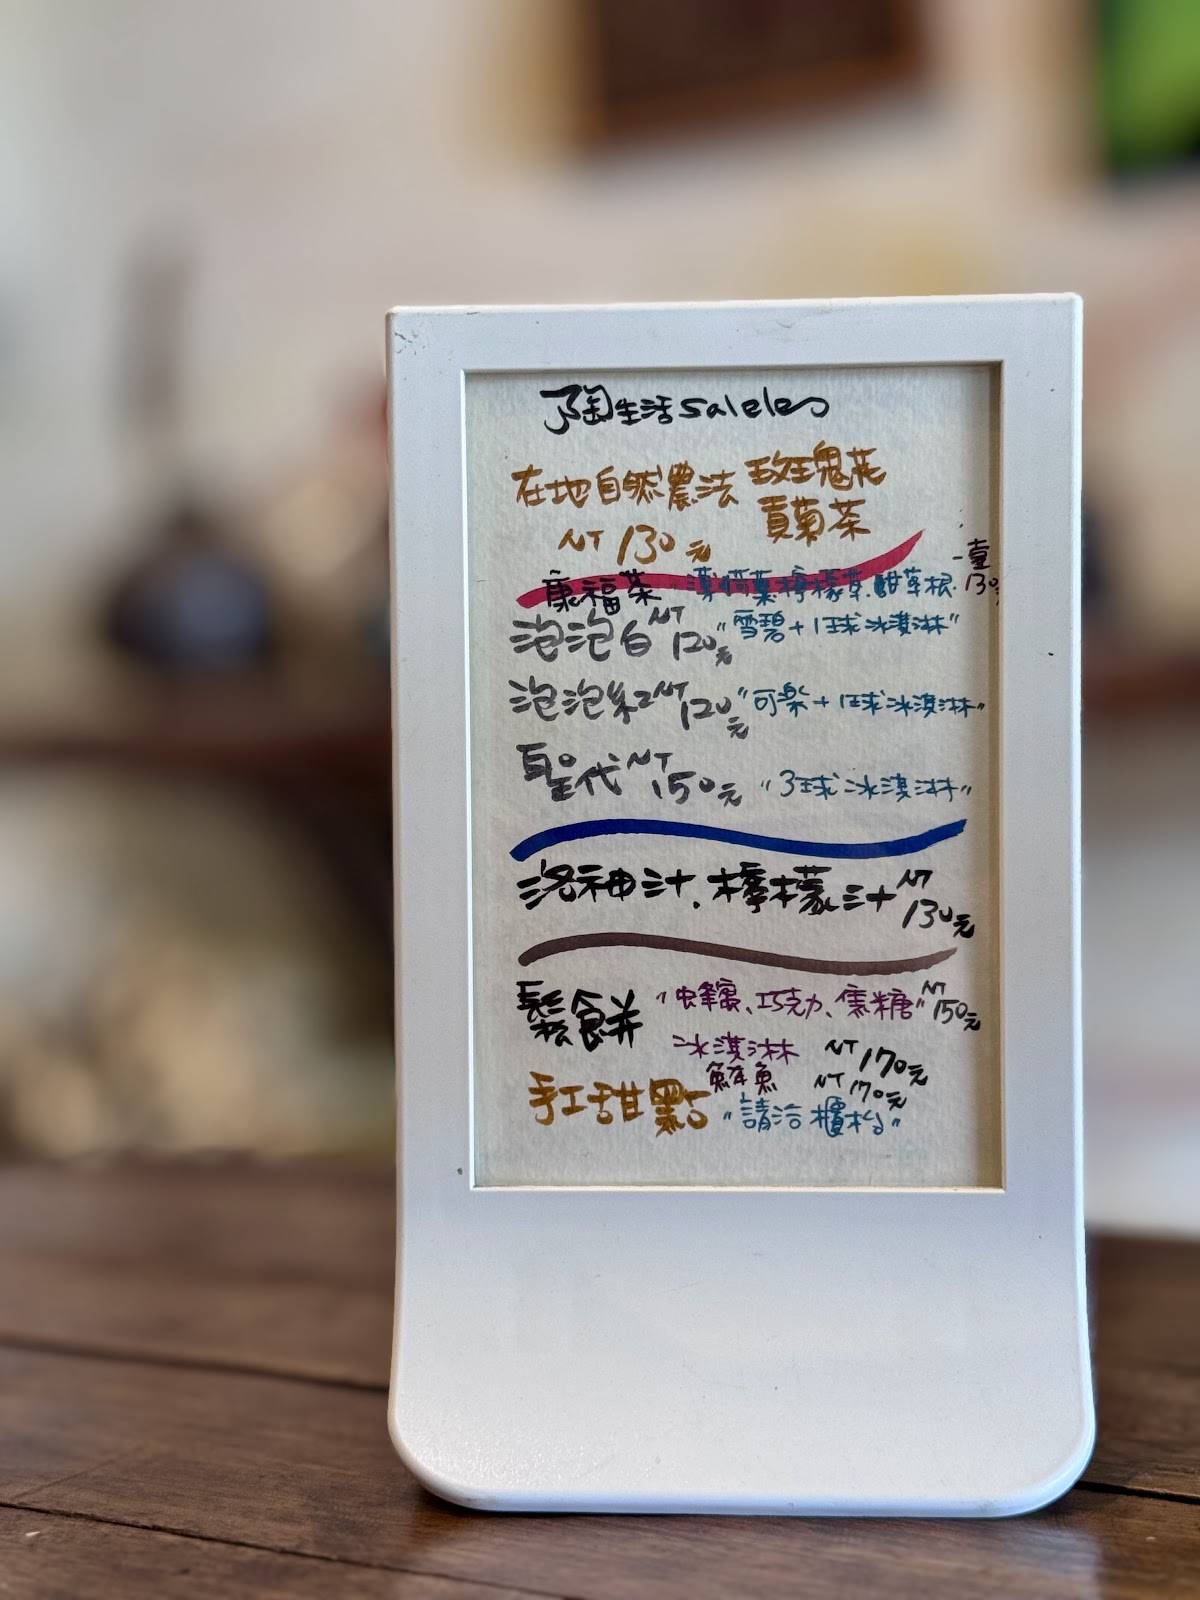 陶生活saleles
在地自然農法 玫瑰花
貢菊茶
NT 130元
康福茶 "漢方葉.檸檬草.甜草根. 一壺130元
泡泡白 NT 120元 "雪碧+1球冰淇淋"
泡泡紅 NT 120元 "可樂+1球冰淇淋"
聖代 NT 150元 "3球冰淇淋"
洛神汁.檸檬汁 NT 130元
鬆餅 "蜂蜜、巧克力、焦糖" NT 150元
冰淇淋 NT 170元
鮪魚 NT 170元
手工甜點 "請洽櫃枱"